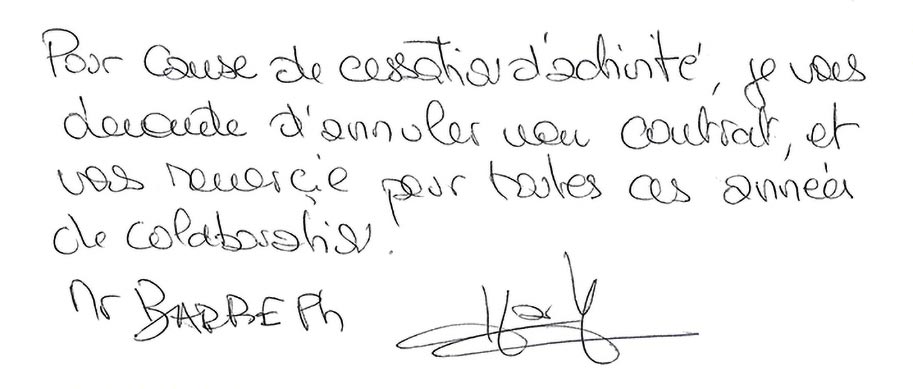 Pour cause de cessation d'activité, je vous
demande d'annuler mon contrat, et
vous remerçie pour toutes ces années
de colaboration.
Mr BARBE Ph